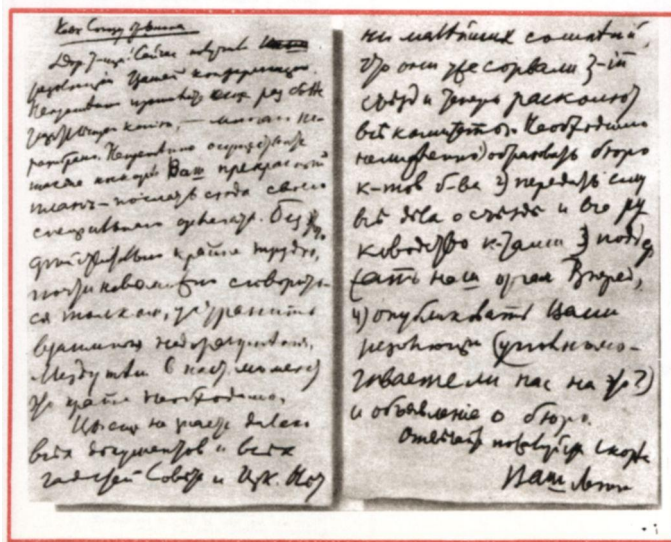 Кавк. Союзу от Ленина
Дор. друзья! Сейчас получил
резолюции Вашей конференции.
Непременно пришлите еще раз более
копию, — многое не
Непременно осуществите
Ваш прекрасный
план — послать сюда своего
специального делегата. Без
крайне трудно,
почти невозможно сговорить-
ся толком, устранить
взаимныя недоразумения,
А в наст. момент
это крайне необходимо.
Вы еще не знаете далеко
всех документов и всех
гадостей Совета и Цк. Нет
ни малѣйших сомнений,
что они уже сорвали 3-ий
съезд и теперь расколют
всѣ комитеты. Необходимо
немедленно 1) образовать бюро
к-тов б-ва 2) передать ему
всѣ дѣла о съезде и все ру
ководство к-тами 3) поддер
жать наш орган Вперед,
4) опубликовать Ваши
резолюции (уполномо-
чиваете ли нас на это?)
и объявление о бюро.
Отвечайте пожалуйста скорее
Ваш Ленин